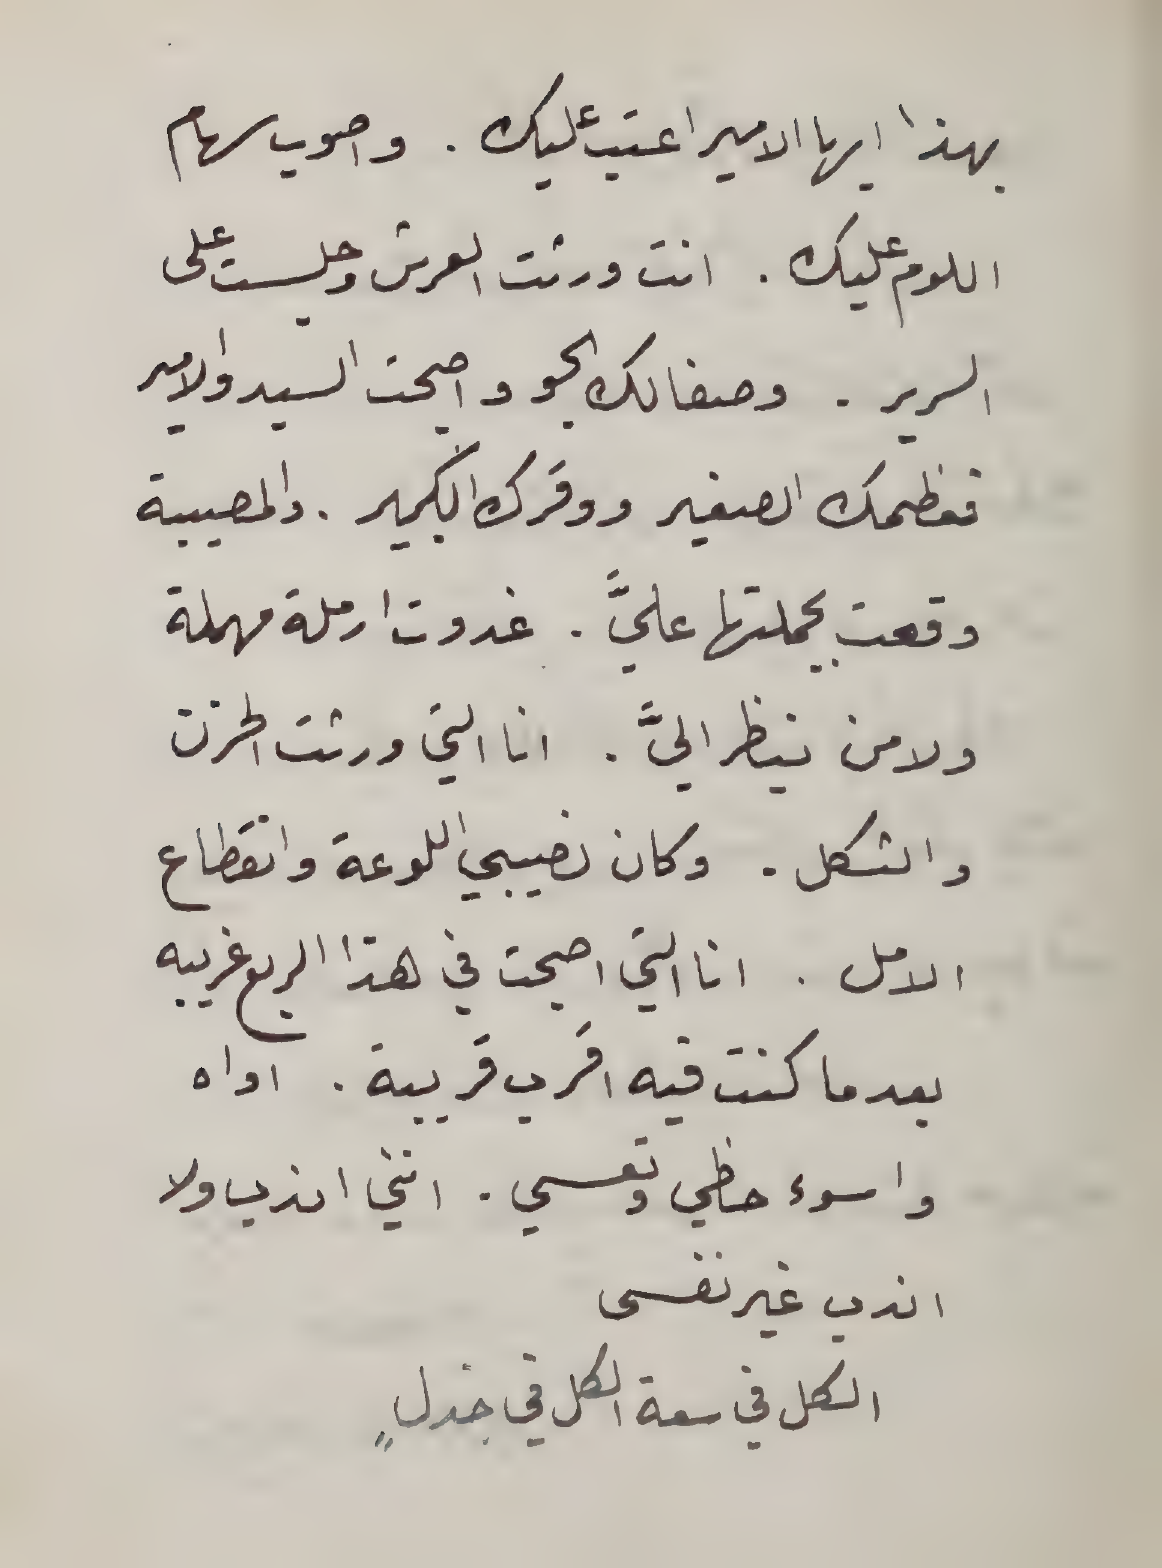 بهذا ايها الامير اعتب عليك . واصوب سهام
اللوم عليك . انت ورثت العرش وجلست على
السرير . وصفا لك الجو واصبحت السيد والامير
فعظمك الصغير ووقرك الكبير . والمصيبة
وقعت بجملتها عليَّ . غدوت ارملة مهملة
ولا من ينظر اليَّ . انا التي ورثت الحزن
والثكل . وكان نصيبي اللوعة وانقطاع
الامل . انا التي اصبحت في هذا الربع غريبه
بعد ما كنت فيه اقرب قريبة . اواه
واسوء حظي وتعسي . انني اندب ولا
اندب غير نفسى
الكل في سعة الكل في جذلٍ